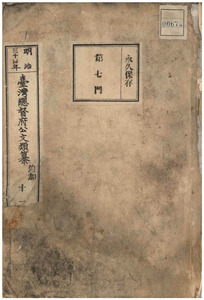 永久保存
第七門
明治
三十四年
臺灣總督府公文類纂
十